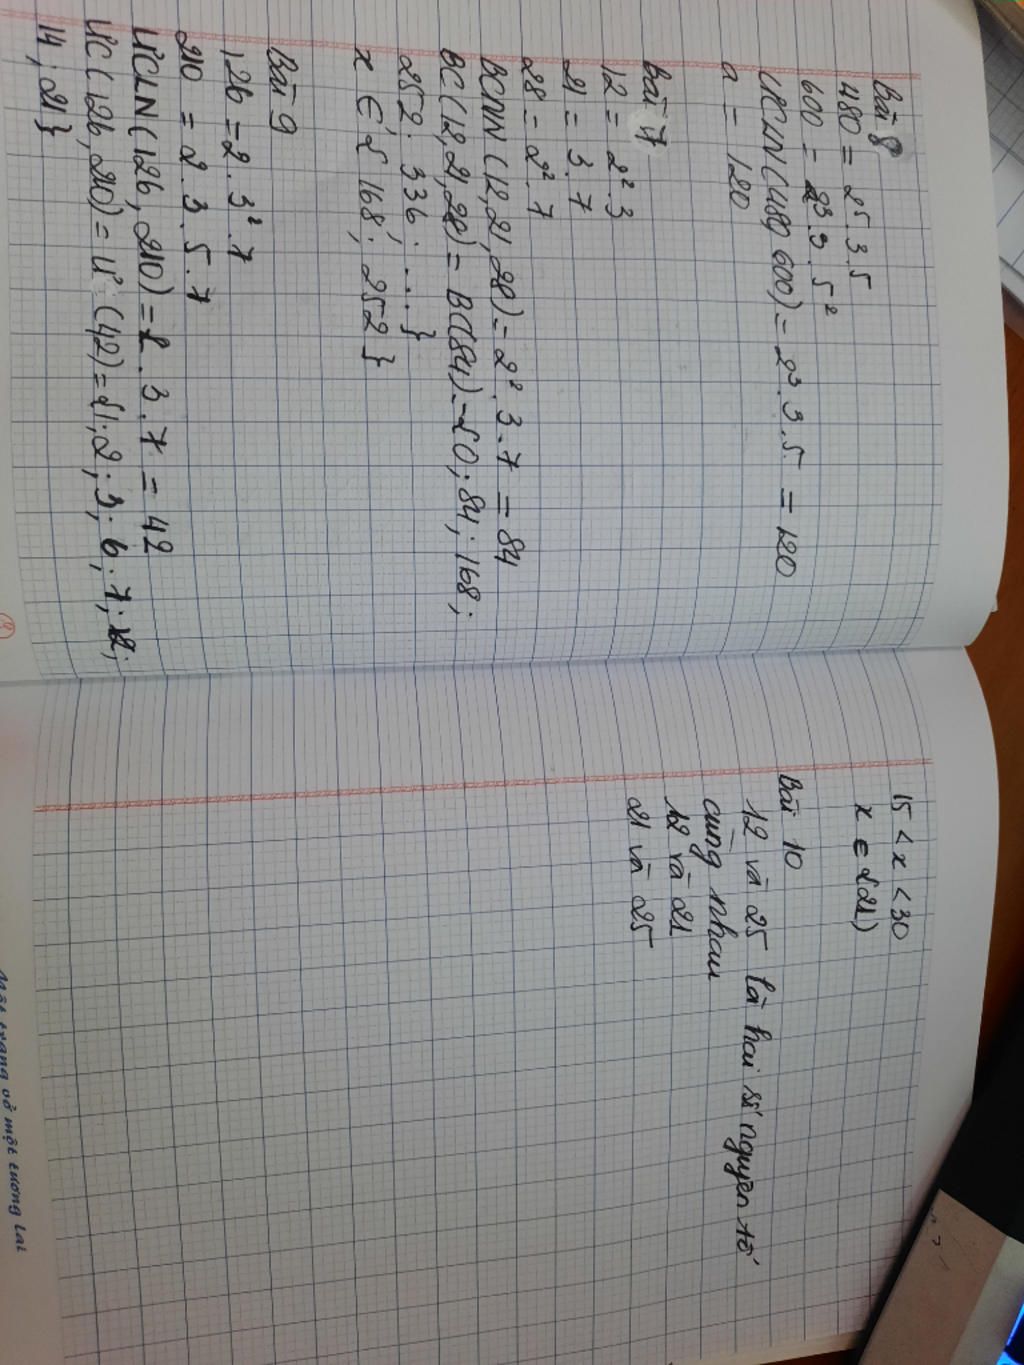 Bài 8
480 = 2⁵.3.5
600 = 2³.3.5²
ƯCLN(480, 600) = 2³.3.5 = 120
a = 120
Bài 7
12 = 2².3
21 = 3.7
28 = 2².7
BCNN(12,21,28) = 2².3.7 = 84
BC(12,21,28) = B(84) = {0; 84; 168;
252; 336; ...}
x ∈ {168; 252}
Bài 9
126 = 2.3².7
210 = 2.3.5.7
ƯCLN(126, 210) = 2.3.7 = 42
ƯC(126, 210) = Ư(42) = {1; 2; 3; 6; 7;
14; 21}
15 < x < 30
x ∈ {21}
Bài 10
12 và 25 là hai số nguyên tố
cùng nhau
12 và 21
21 và 25
Một trang vở một tương lai